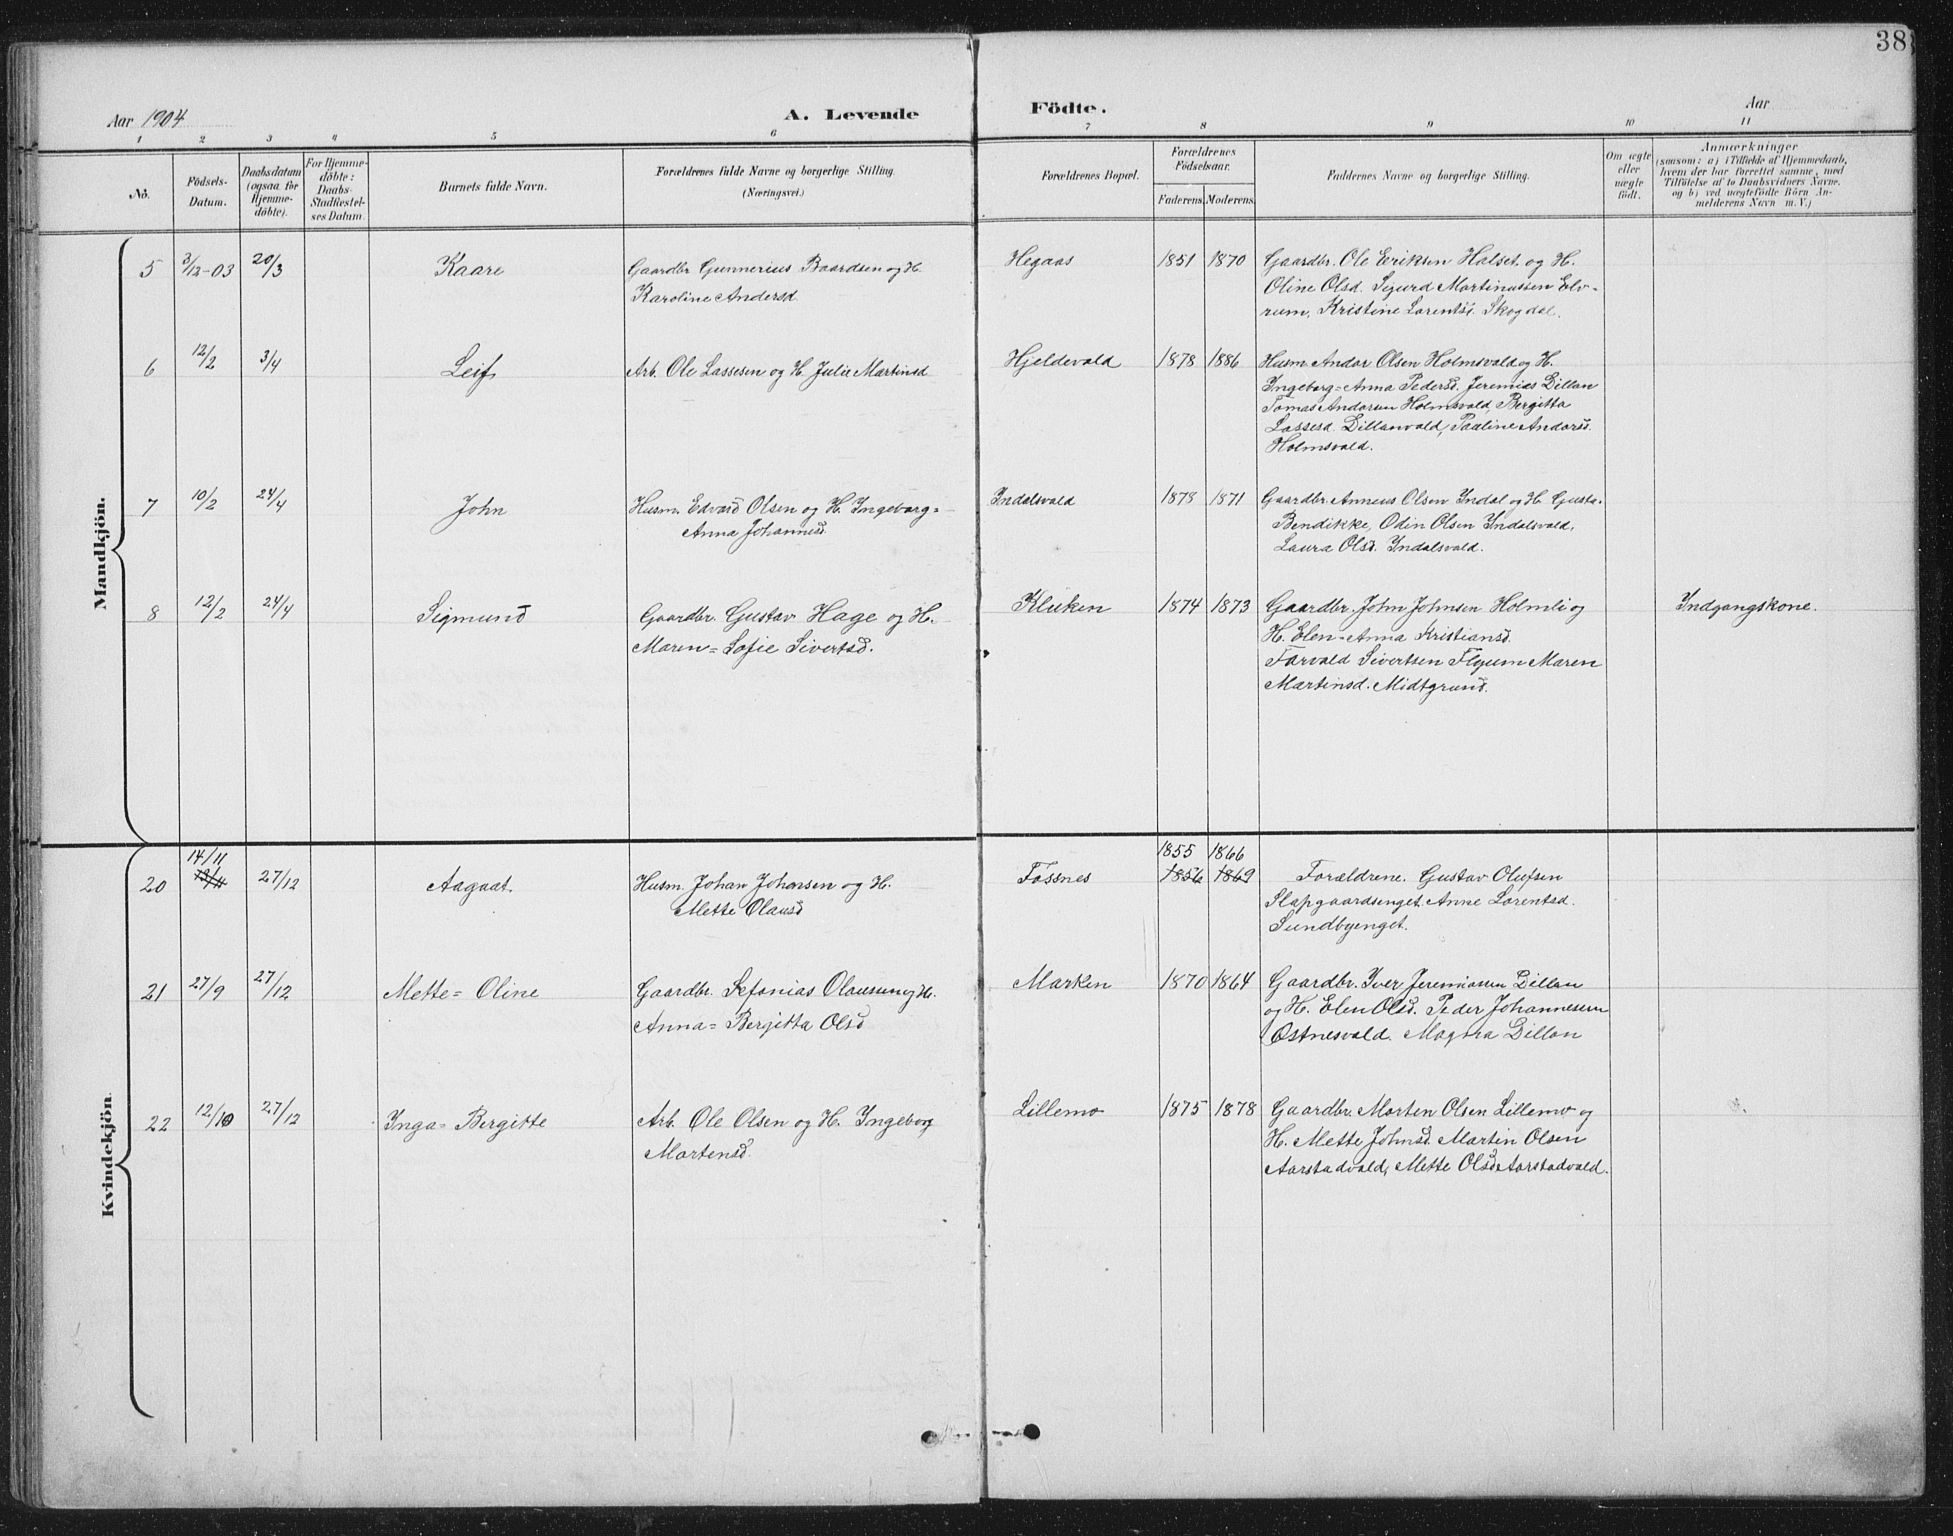 38
Aar 1904
A. Levende
Födte.
Aar
1 2 3 4 5 6 7 8 9 10 11
No.
Födsels-
Datum.
Daabsdatum
(ogsaa for
Hjemme-
döbte).
For Hjemme-
döbte:
Daabs-
Stadfæstel-
ses Datum.
Barnets fulde Navn.
Forældrenes fulde Navne og borgerlige Stilling.
(Næringsvei.)
Forældrenes Bopæl.
Forældrenes
Födselsaar.
Faderens. Moderens.
Faddernes Navne og borgerlige Stilling.
Om ægte
eller
uægte
födt.
Anmærkninger
(saasom: a) i Tilfælde af Hjemmedaab,
hvem der har forrettet samme, med
Tilföielse af to Daabsvidners Navne.
og b) ved uægtefödte Börn An-
melderens Navn m. V.)
Mandkjön.
5 3/12-03 20/3 Kaare
Gaardbr Gunnerius Baardsen og H.
Karoline Andersd.
Hegaas 1851 1870
Gaardbr. Ole Eriksen Halset og H.
Oline Olsd. Sigurd Martinussen Elv-
rum, Kristine Lorentsd. Skogdal.
6 12/2 3/4 Leif
Arb. Ole Lassesen og H. Julie Martinsd
Hjeldevald 1878 1886
Husm. Andor Olsen Holmsvald og H.
Ingeborg=Anna Pedersd. Jeremias Dillan
Tomas Andorsen Holmsvald, Bergitta
Lassesd. Dillanvald, Pauline Andorsd.
Holmsvald.
7 10/2 24/4 John
Husm. Edvard Olsen og H. Ingeborg=
Anna Johannesd.
Indalsvald 1873 1871
Gaardbr. Anneus Olsen Indal og H. Gusta-
Bendikke, Odin Olsen Indalsvald,
Laura Olsd. Indalsvald.
8 12/2 24/4 Sigmund
Gaardbr. Gustav Hage og H.
Maren=Sofie Sivertsd.
Kluken 1874 1873
Gaardbr. John Johnsen Holmli og
H. Elen=Anna Kristiansd.
Torvald Sivertsen Flyum Maren
Martinsd. Midtgrund.
Indgangskone.
Kvindekjön.
20 14/11 13/11 27/12 Aagaat.
Husm. Johan Johansen og H.
Mette Olausd
Fossnes 1855 1866
1856 1869
Forældrene. Gustav Olufsen
Slapgaardsenget. Anne Lorentsd.
Sundbyenget.
21 27/9 27/12 Mette=Oline
Gaardbr. Sefanias Olausen og H.
Anna=Bergitta Olsd
Marken 1870 1864
Gaardbr. Iver Jeremiasen Dillan
og H. Elen Olsd. Peder Johannesen
Østnesvald. Magna Dillan
22 12/10 27/12 Inga=Bergitte
Arb. Ole Olsen og H. Ingeborg
Mortensd.
Lillemo 1875 1878
Gaardbr. Morten Olsen Lillemo og
H. Mette Johnsd. Martin Olsen
Aarstadvald, Mette Olsd Aarstadvald.